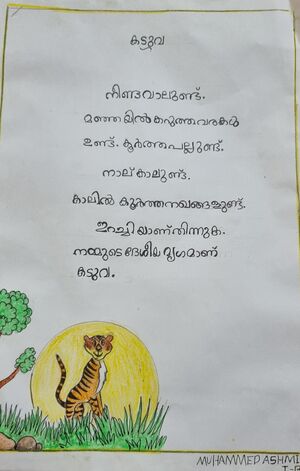 കടുവ
നീണ്ടവാലുണ്ട്.
മഞ്ഞയിൽ കറുത്തവരകൾ
ഉണ്ട്. കൂർത്തപല്ലുണ്ട്.
നാല് കാലുണ്ട്.
കാലിൽ കൂർത്തനഖങ്ങളുണ്ട്.
ഇറച്ചിയാണ് തിന്നുക.
നമ്മുടെ ദേശീയ മൃഗമാണ്
കടുവ.
MUHAMMED ASHMI